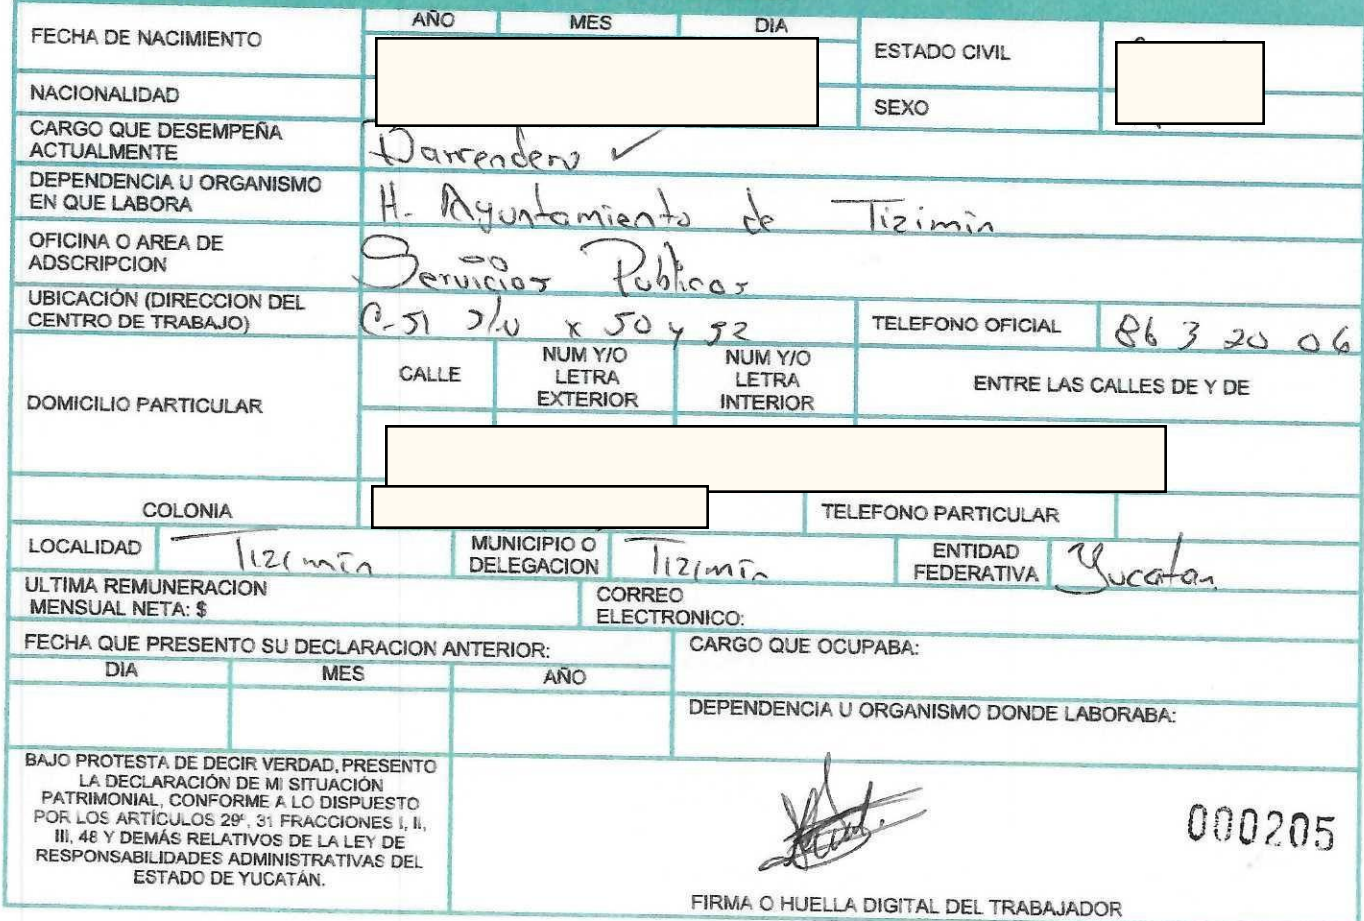 FECHA DE NACIMIENTO
AÑO MES DIA
ESTADO CIVIL
NACIONALIDAD
SEXO
CARGO QUE DESEMPEÑA
ACTUALMENTE
Barrendero ✓
DEPENDENCIA U ORGANISMO
EN QUE LABORA
H. Ayuntamiento de Tizimín
OFICINA O AREA DE
ADSCRIPCION
Servicios Publicos
UBICACIÓN (DIRECCION DEL
CENTRO DE TRABAJO)
C-51 S/N x 50 y 52
TELEFONO OFICIAL
86 3 20 06
DOMICILIO PARTICULAR
CALLE
NUM Y/O
LETRA
EXTERIOR
NUM Y/O
LETRA
INTERIOR
ENTRE LAS CALLES DE Y DE
COLONIA
TELEFONO PARTICULAR
LOCALIDAD
Tizimín
MUNICIPIO O
DELEGACION
Tizimín
ENTIDAD
FEDERATIVA
Yucatan
ULTIMA REMUNERACION
MENSUAL NETA: $
CORREO
ELECTRONICO:
FECHA QUE PRESENTO SU DECLARACION ANTERIOR:
DIA MES AÑO
CARGO QUE OCUPABA:
DEPENDENCIA U ORGANISMO DONDE LABORABA:
BAJO PROTESTA DE DECIR VERDAD, PRESENTO
LA DECLARACIÓN DE MI SITUACIÓN
PATRIMONIAL, CONFORME A LO DISPUESTO
POR LOS ARTÍCULOS 29°, 31 FRACCIONES I, II,
III, 48 Y DEMÁS RELATIVOS DE LA LEY DE
RESPONSABILIDADES ADMINISTRATIVAS DEL
ESTADO DE YUCATÁN.
000205
FIRMA O HUELLA DIGITAL DEL TRABAJADOR